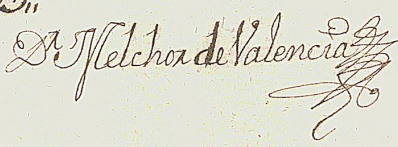 Dr. Melchor de Valencia